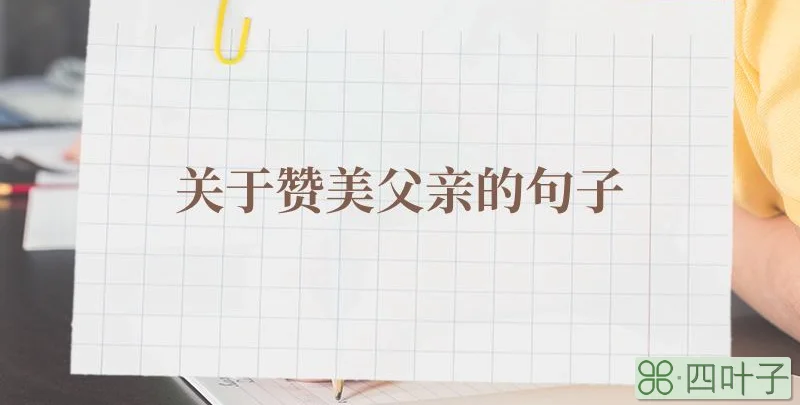 关于赞美父亲的句子
四叶子